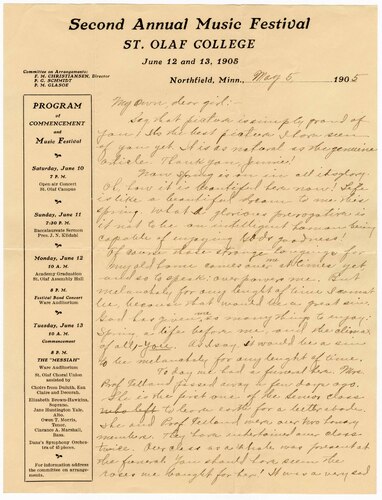 Second Annual Music Festival
ST. OLAF COLLEGE
June 12 and 13, 1905
Committee on Arrangements:
F. M. CHRISTIANSEN, Director
P. G. SCHMIDT
P. M. GLASOE
Northfield, Minn., May 5 1905
PROGRAM
of
COMMENCEMENT
and
Music Festival
Saturday, June 10
7 P. M.
Open air Concert
St. Olaf Campus
Sunday, June 11
7:30 P. M.
Baccalaureate Sermon
Pres. J. N. Kildahl
Monday, June 12
10 A. M.
Academy Graduation
St. Olaf Assembly Hall
8 P. M.
Festival Band Concert
Ware Auditorium
Tuesday, June 13
10 A. M.
Commencement
8 P. M.
THE "MESSIAH"
Ware Auditorium
St. Olaf Choral Union
assisted by
Choirs from Duluth, Eau
Claire and Decorah.
Elizabeth Brown-Hawkins,
Soprano.
Jane Huntington Yale,
Alto.
Owen T. Morris,
Tenor.
Clarance A. Marshall,
Bass.
Danz's Symphony Orchestra
of 15 pieces.
For information address
the committee on arrangements.
My own dear girl:-
Say that picture is simply grand of
you! It's the best picture I have seen
of you yet. It is as natural as the genuine
article. Thank you, Jennie!
Now Spring is on in all its glory.
Oh how it is beautiful here now! Life
is like a beautiful dream to me this
spring. What a glorious prerogative is
it not to be an intelligent human being
capable of enjoying God's goodness!
Of course some strange longing for
my old home comes over me at times yet
and so to speak, overpowers me. Still
melancholy for any lenght of time I cannot
be, because that would be a great sin.
God has given me so many things to enjoy:
Spring, a life before me and the climax
of all, you. As I say it would be a sin
to be melancholy for any lenght of time.
To day we had a funeral here. Mrs.
Prof. Felland passed away a few days ago.
She is the first one of the Senior class
who left to leave earth for a better abode.
She and Prof. Felland were our two honorary
members. They have entertained our class
twice. Our class as a whole was present at
the funeral. You should have seen the
roses we bought for her! It was a very sad